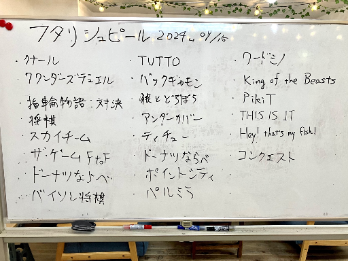 フタリシュピール 2024.09/15
・クナール
・7ワンダーズデュエル
・指輪物語:対決
・将棋
・スカイチーム
・ザ・ゲーム F to F
・ドーナツならべ
・バイソン将棋
・TUTTO
・バックギャモン
・狼とどろぼう
・アンダーカバー
・ティチュー
・ドーナツならべ
・ポイントシティ
・パルミラ
・ワードミノ
・King of the Beasts
・PikiT
・THIS IS IT
・Hey! that's my fish!
・コンクエスト